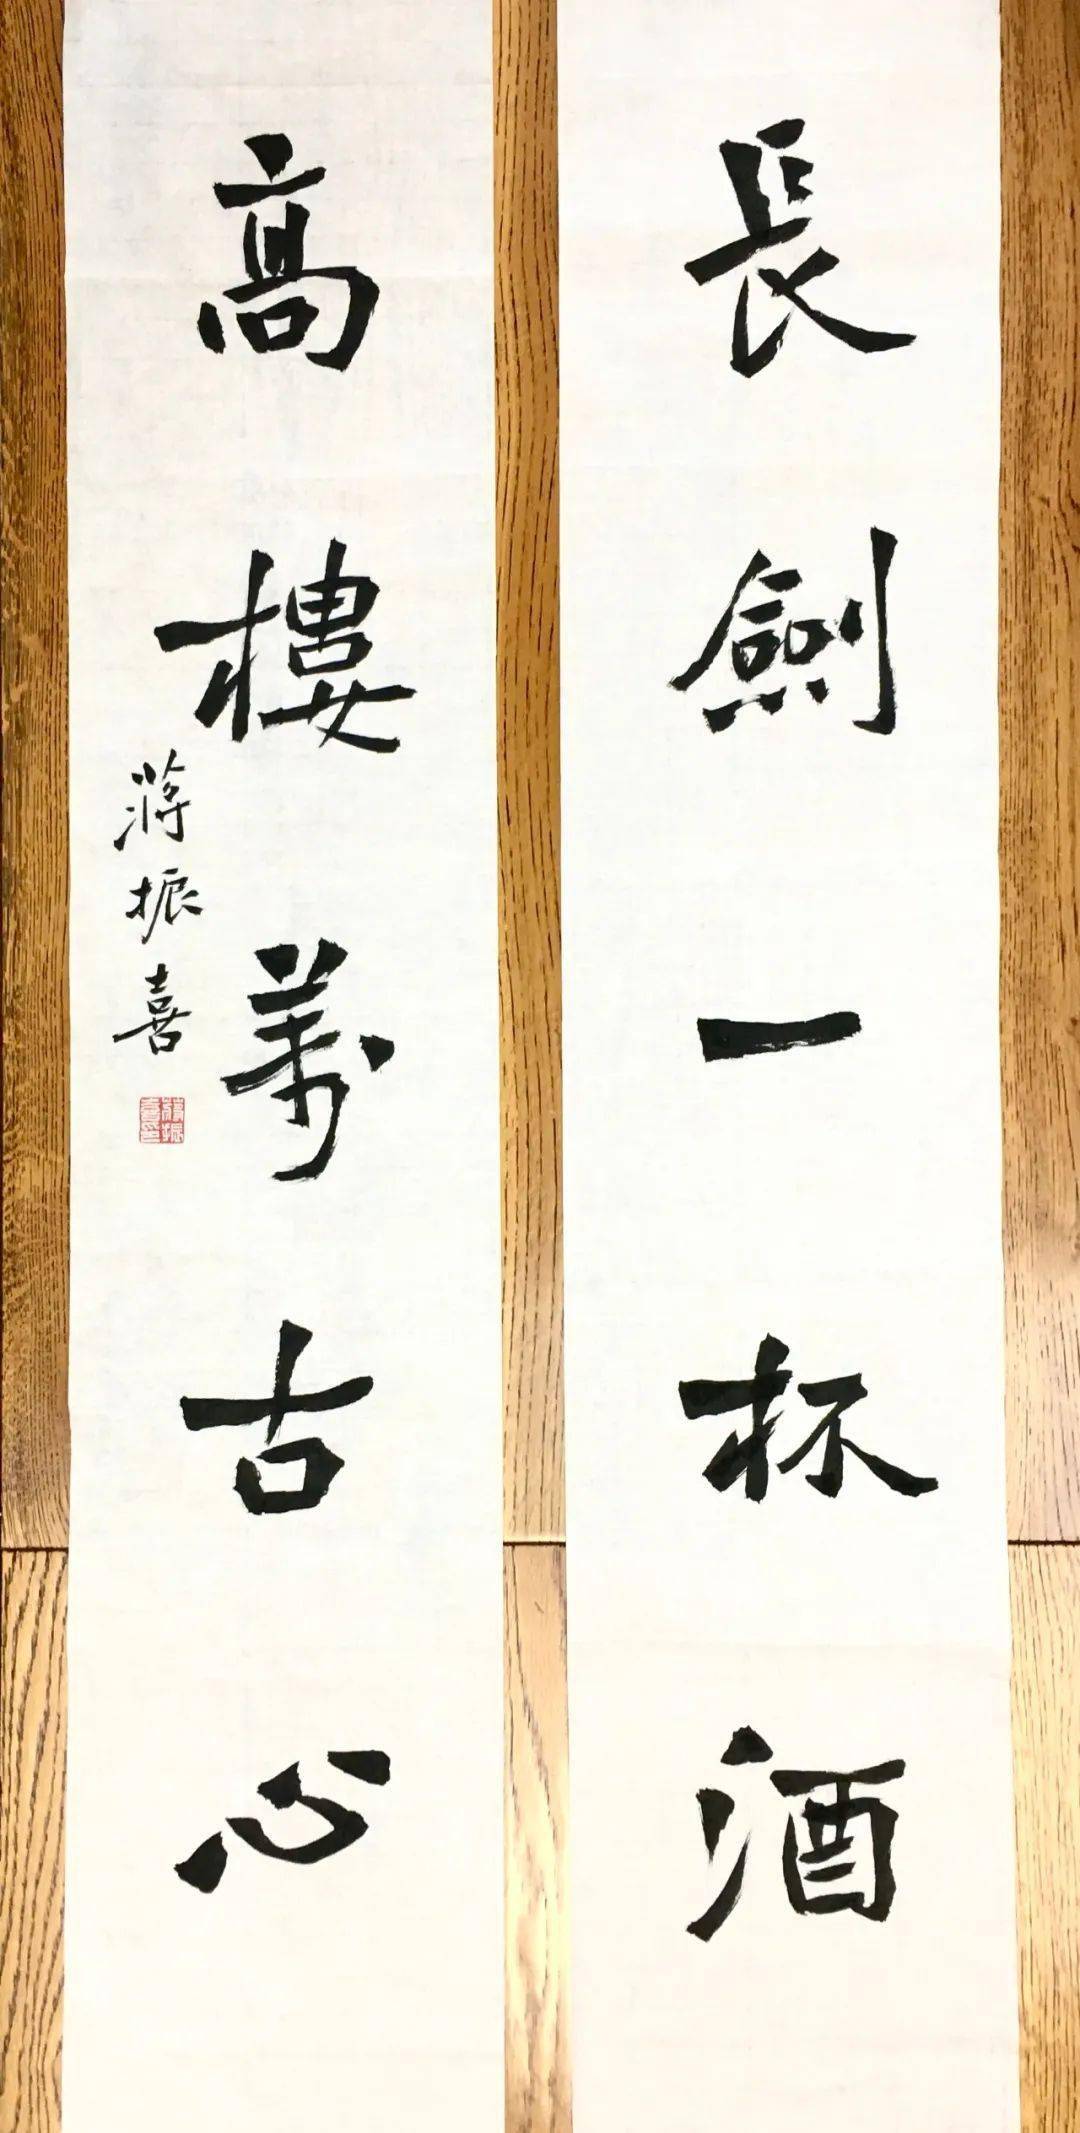 長劍一杯酒
高樓萬古心
蔣振喜